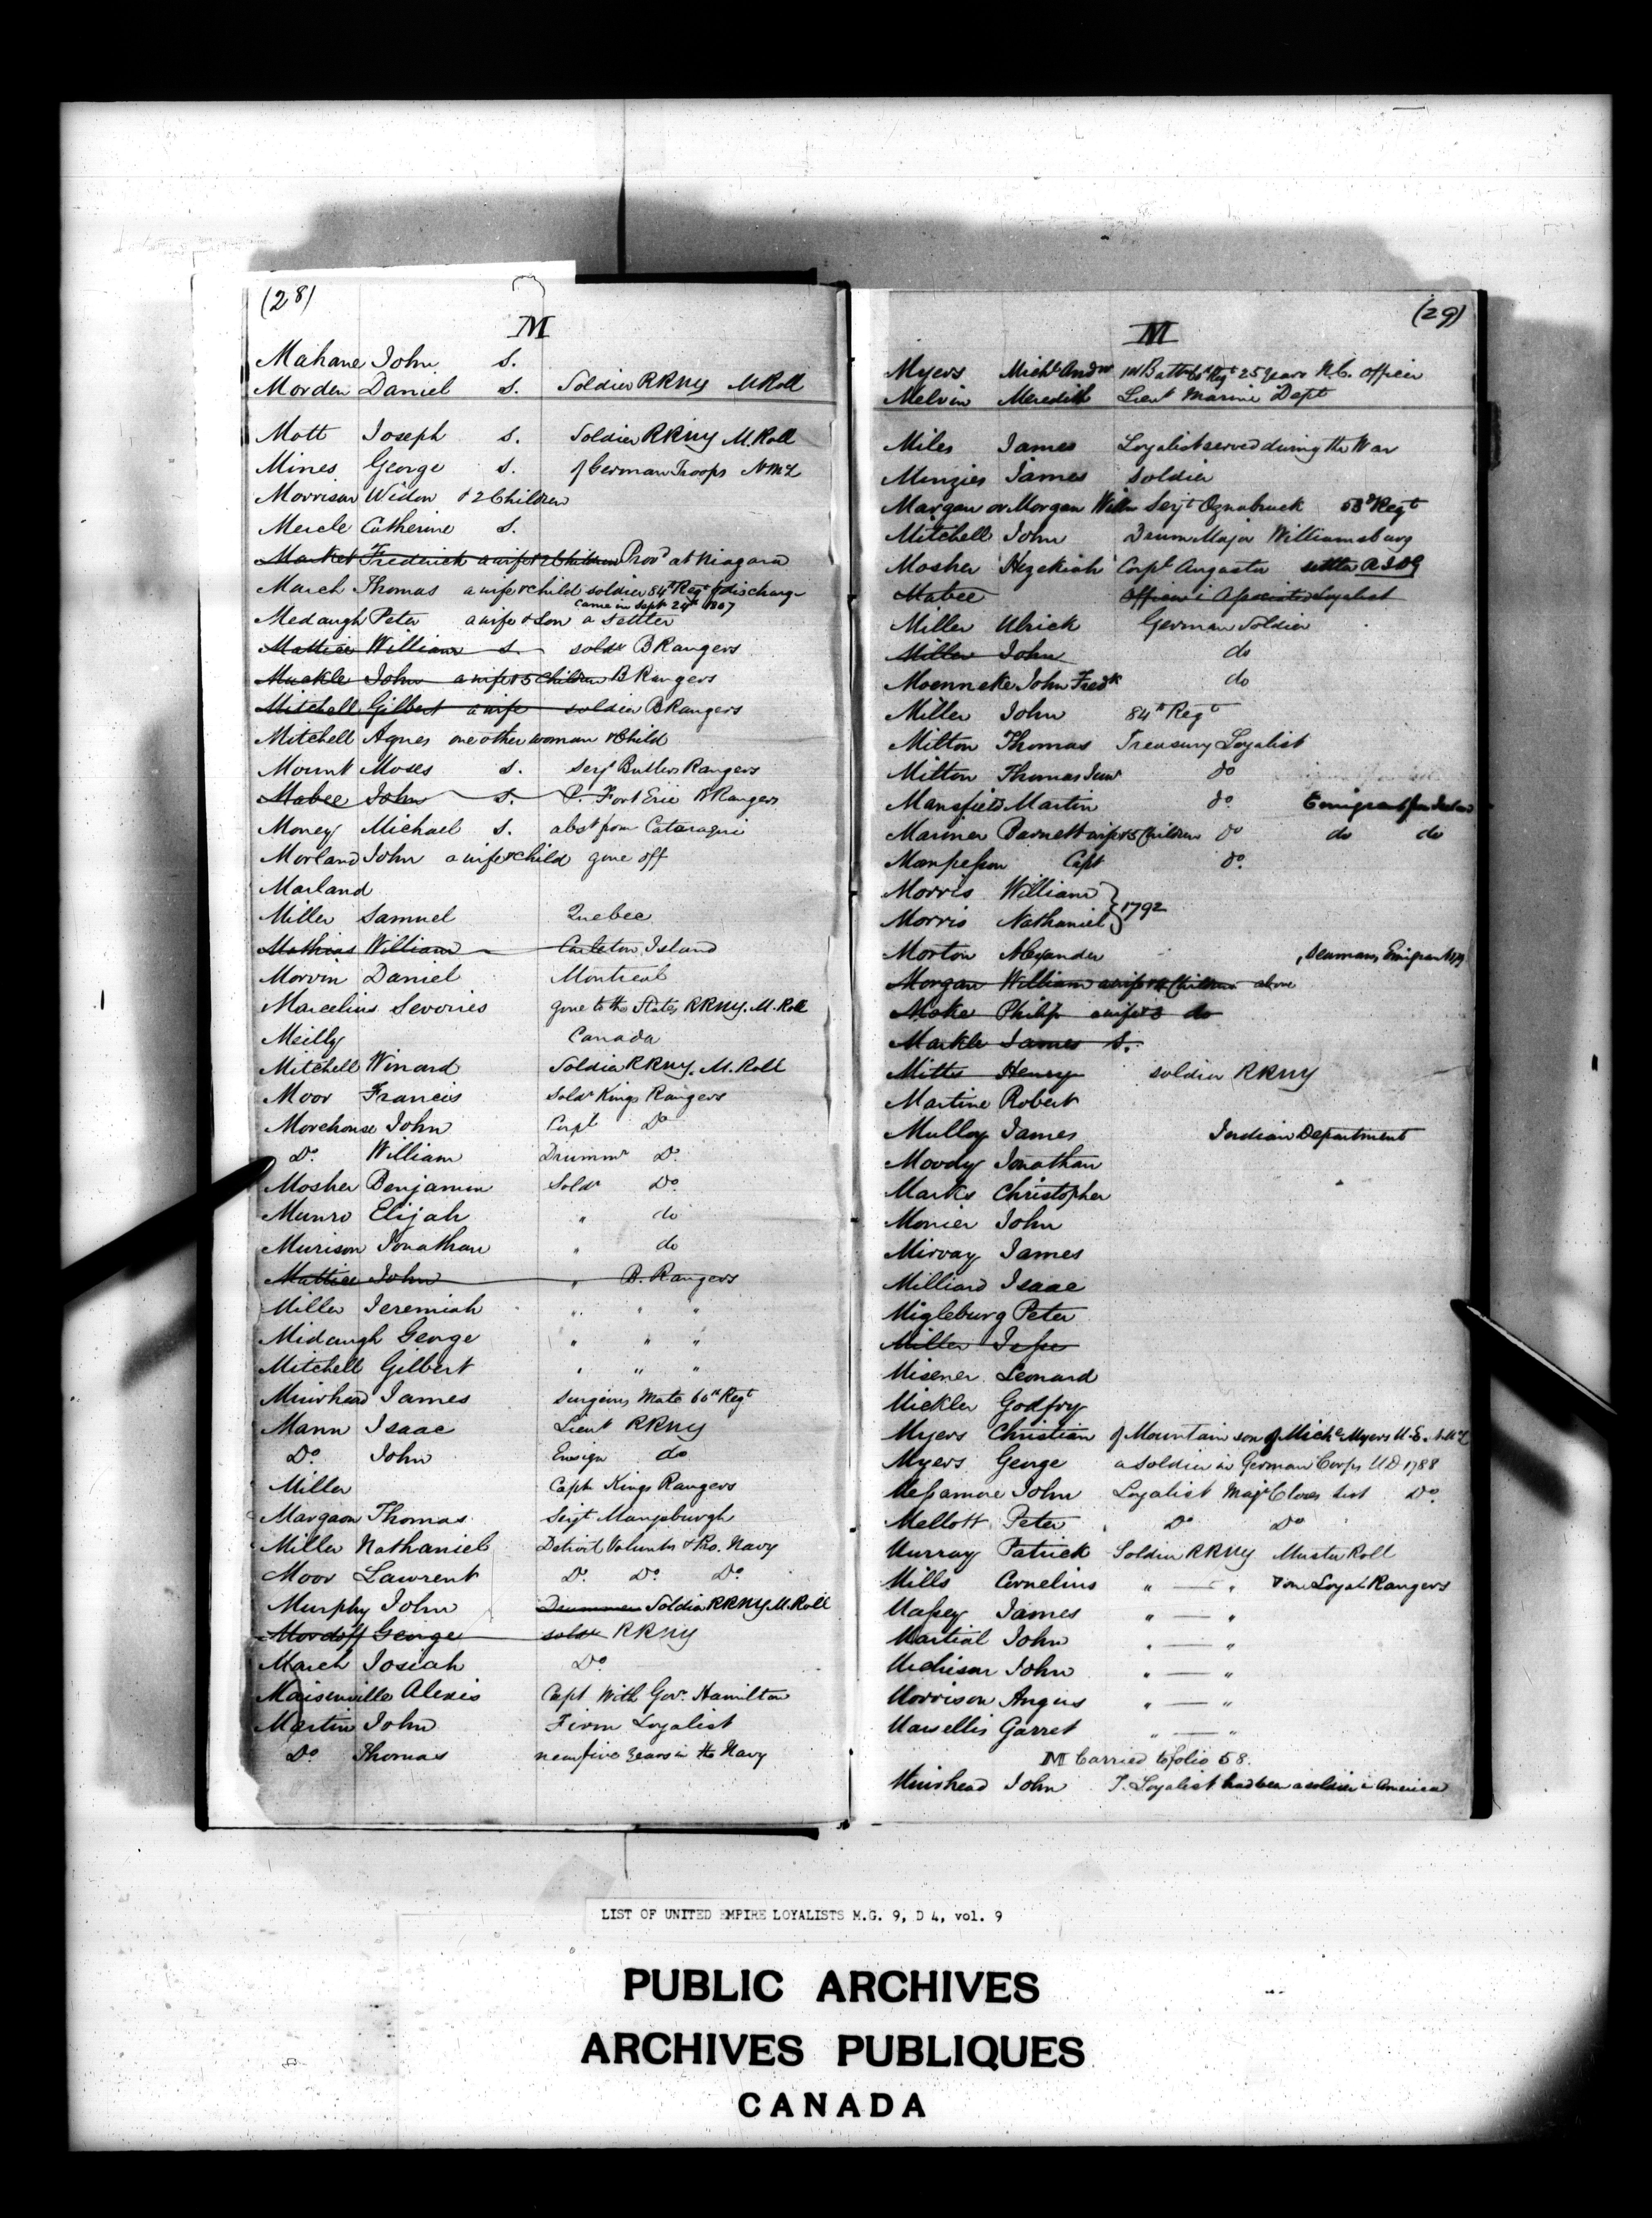 (28)
M
Mahane John S.
Morden Daniel S. Soldier RRNY M Roll
Mott Joseph S. Soldier RRNY M. Roll
Mines George S. of German Troops
Morrison Widow & 2 Children
Mercle Catherine S.
Market Frederick a wife & 2 Children Prov^d at Niagara
March Thomas a wife & child soldier 84th Reg^t discharge
came in Sept 24th 1807
Medaugh Peter a wife & Son a settler
Mattice William S. sold^r B Rangers
Muckle John a wife & 5 Children B Rangers
Mitchell Gilbert a wife soldier B Rangers
Mitchell Agnes one other woman & Child
Mount Moses S. Serj^t Butlers Rangers
Mabee John S. P. Fort Erie B Rangers
Money Michael S. abs^t from Cataraqui
Morland John a wife & child gone off
Marland
Miller Samuel Quebec
Mathias William Carleton Island
Morvin Daniel Montreal
Marcelius Sevories gone to the States RRNY. M. Roll
Meilly Canada
Mitchell Winard Soldier RRNY. M. Roll
Moor Francis Sold^r Kings Rangers
Morehouse John Corp^l D^o
D^o William Drumm^r D^o
Mosher Benjamin Sold^r D^o
Munro Elijah " do
Murison Jonathan " do
Mattice John " B. Rangers
Miller Jeremiah " " "
Midaugh George " " "
Mitchell Gilbert " " "
Muirhead James Surgeons Mate 60th Reg^t
Mann Isaac Lieut RRNY
D^o John Ensign do
Miller Capt Kings Rangers
Margaon Thomas Serjt Marysburgh
Miller Nathaniel Detroit Volunt^rs & Pro. Navy
Moor Lawrent D^o D^o D^o
Murphy John Drummer Soldier RRNY M. Roll
Mordoff George sold^r RRNY
March Josiah D^o
Maisonville Alexis Capt With Gov^r Hamilton
Martin John Firm Loyalist
D^o Thomas near five years in the Navy
(29)
M
Myers Mich^l And^w 1st Batt 60th Reg^t 25 years N.C. officer
Melvin Meredith Lieut Marine Dept
Miles James Loyalist served during the War
Minzies James Soldier
Margan or Morgan Will^m Serj^t Oznabruck 53^d Reg^t
Mitchell John Drum Major Williamsburg
Mosher Hezekiah Corp^l Augusta settler
Mabee Officer in Associated Loyalist
Miller Ulrick German Soldier
Miller John do
Moenneke John Fred^k do
Miller John 84th Reg^t
Milton Thomas Treasury Loyalist
Milton Thomas Jun^r do
Mansfield Martin d^o Emigrant from Ireland
Mariner Barnett wife & 5 Children do do do
Mompesson Capt d^o
Morris William
Morris Nathaniel } 1792
Morton Alexander Seaman, Emigrant
Morgan William a wife & 4 Children above
Moke Philip a wife & 3 do
Markle James S.
Mitts Henry soldier RRNY
Martine Robert
Mulloy James Indian Department
Moody Jonathan
Marks Christopher
Monier John
Mirvay James
Milliard Isaac
Migleburg Peter
Miller Jesse
Misener Leonard
Mickler Godfry
Myers Christian of Mountain son of Mich^l Myers U.E.
Myers George a soldier in German Corps UD 1788
Messamore John Loyalist Maj^r Clows List D^o
Mellott Peter D^o D^o
Murray Patrick Soldier RRNY Muster Roll
Mills Cornelius " — " Loyal Rangers
Massey James " — "
Martial John " — "
Mchisar John " — "
Morrison Angus " — "
Marsellis Garret " — "
M Carried to folio 58.
Muirhead John T. Loyalist had been a soldier in America
LIST OF UNITED EMPIRE LOYALISTS M.G. 9, D 4, vol. 9
PUBLIC ARCHIVES
ARCHIVES PUBLIQUES
CANADA